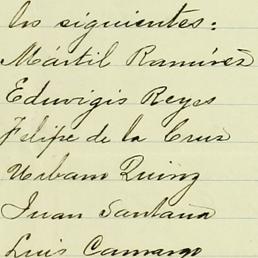 los siguientes:
Mártil Ramírez
Eduvigis Reyes
Felipe de la Cruz
Urbano
Juan Santana
Luis Camargo